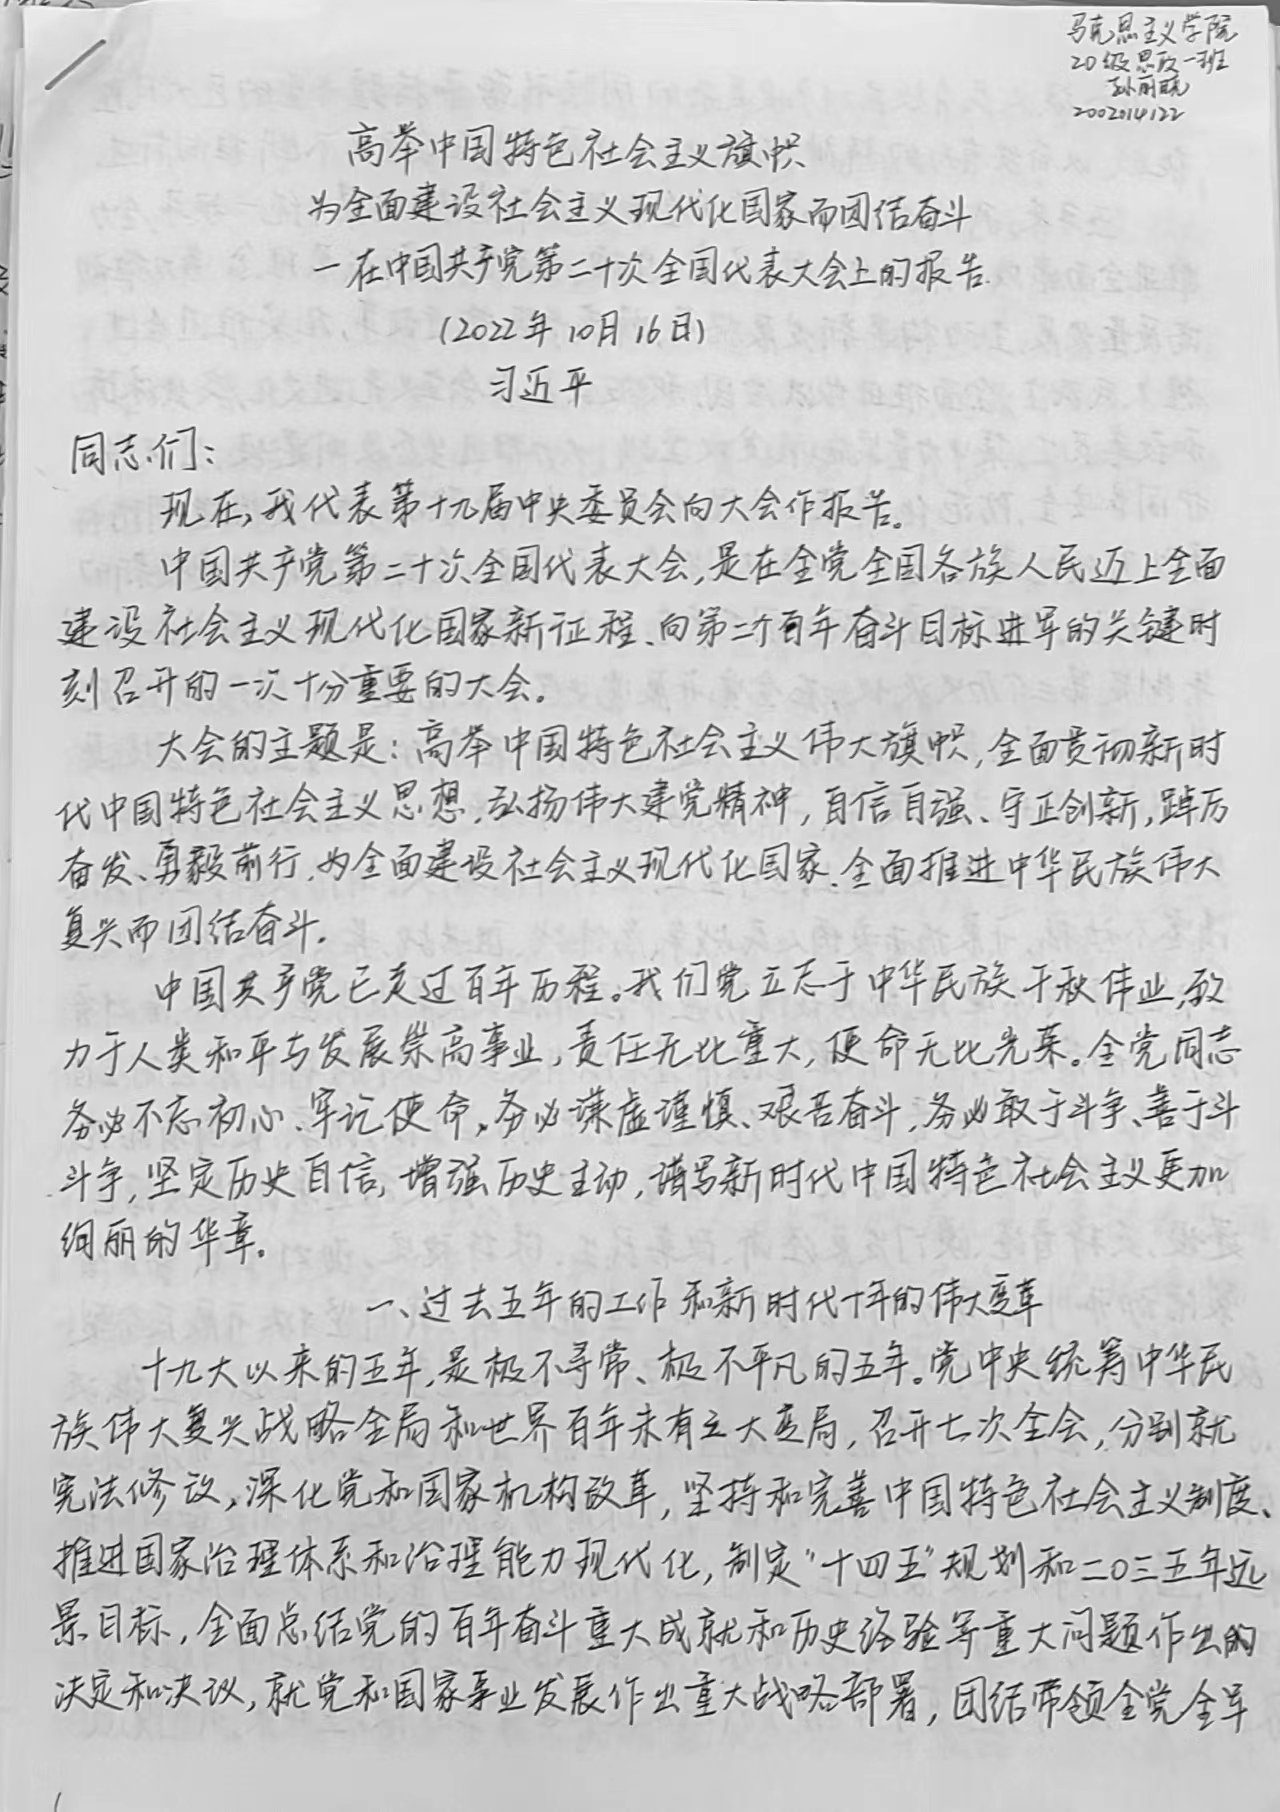 马克思主义学院
20级思政一班
孙丽晓
2002014122
高举中国特色社会主义旗帜
为全面建设社会主义现代化国家而团结奋斗
一在中国共产党第二十次全国代表大会上的报告.
(2022年10月16日)
习近平
同志们:
现在,我代表第十九届中央委员会向大会作报告。
中国共产党第二十次全国代表大会,是在全党全国各族人民迈上全面
建设社会主义现代化国家新征程、向第二个百年奋斗目标进军的关键时
刻召开的一次十分重要的大会。
大会的主题是:高举中国特色社会主义伟大旗帜,全面贯彻新时
代中国特色社会主义思想,弘扬伟大建党精神,自信自强、守正创新,踔厉
奋发、勇毅前行,为全面建设社会主义现代化国家、全面推进中华民族伟大
复兴而团结奋斗.
中国共产党已走过百年历程。我们党立志于中华民族千秋伟业,致
力于人类和平与发展崇高事业,责任无比重大,使命无比光荣。全党同志
务必不忘初心、牢记使命,务必谦虚谨慎、艰苦奋斗,务必敢于斗争、善于斗
斗争,坚定历史自信,增强历史主动,谱写新时代中国特色社会主义更加
绚丽的华章。
一、过去五年的工作和新时代十年的伟大变革
十九大以来的五年,是极不寻常、极不平凡的五年。党中央统筹中华民
族伟大复兴战略全局和世界百年未有之大变局,召开七次全会,分别就
宪法修改,深化党和国家机构改革,坚持和完善中国特色社会主义制度、
推进国家治理体系和治理能力现代化,制定"十四五"规划和二〇三五年远
景目标,全面总结党的百年奋斗重大成就和历史经验等重大问题作出的
决定和决议,就党和国家事业发展作出重大战略部署,团结带领全党全军